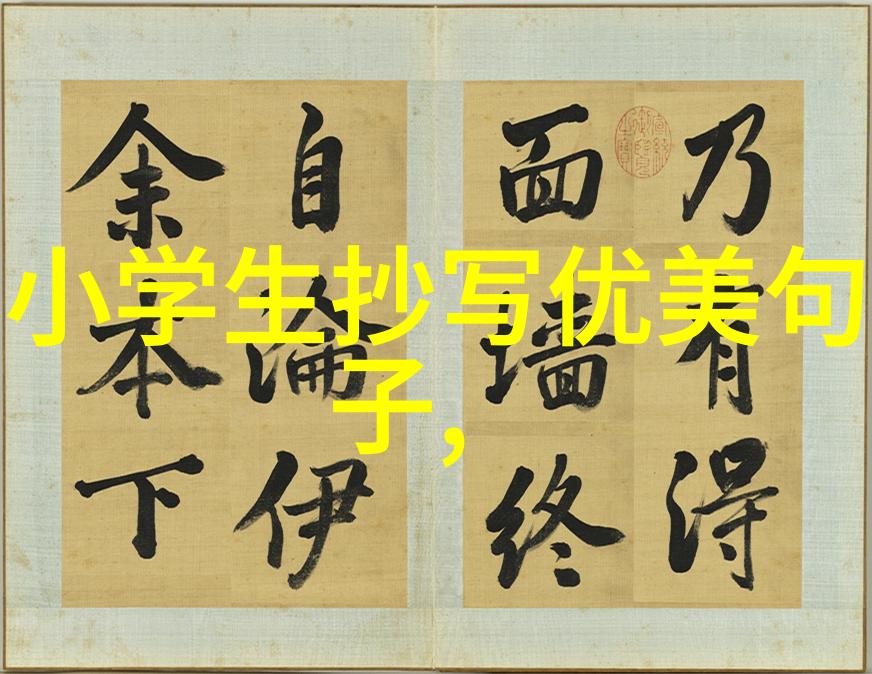 小学生抄写优美句
子，
乃有得
面墙终
自淪伊
余本下